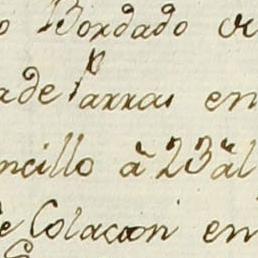 Bordado
de Parras en
ncillo à 23 al
Colacion en